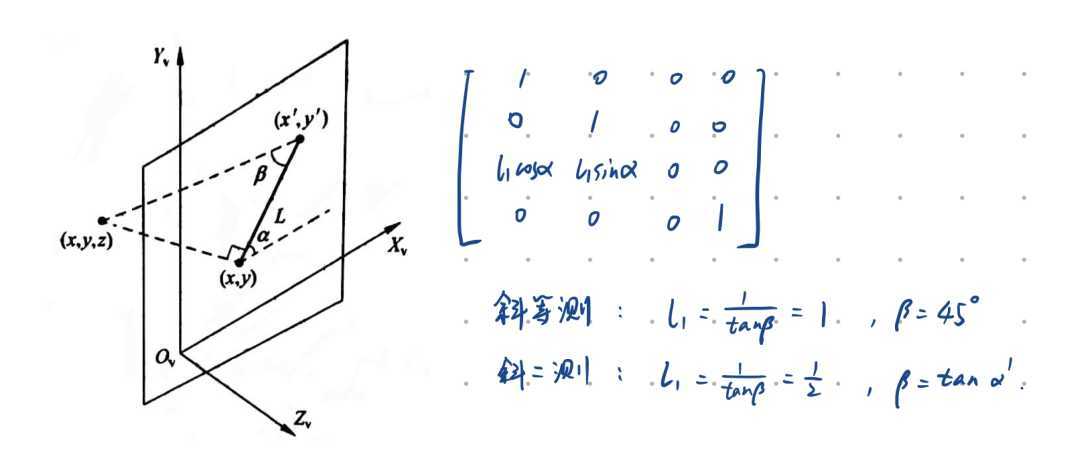 Yᵥ
(x′,y′)
β
L
(x,y,z)
α
Xᵥ
(x,y)
Oᵥ
Zᵥ
1 0 0 0
0 1 0 0
L₁cosα L₁sinα 0 0
0 0 0 1
斜等测 : L₁ = 1/tanβ = 1 , β = 45°
斜二测 : L₁ = 1/tanβ = 1/2 , β = tan α′.